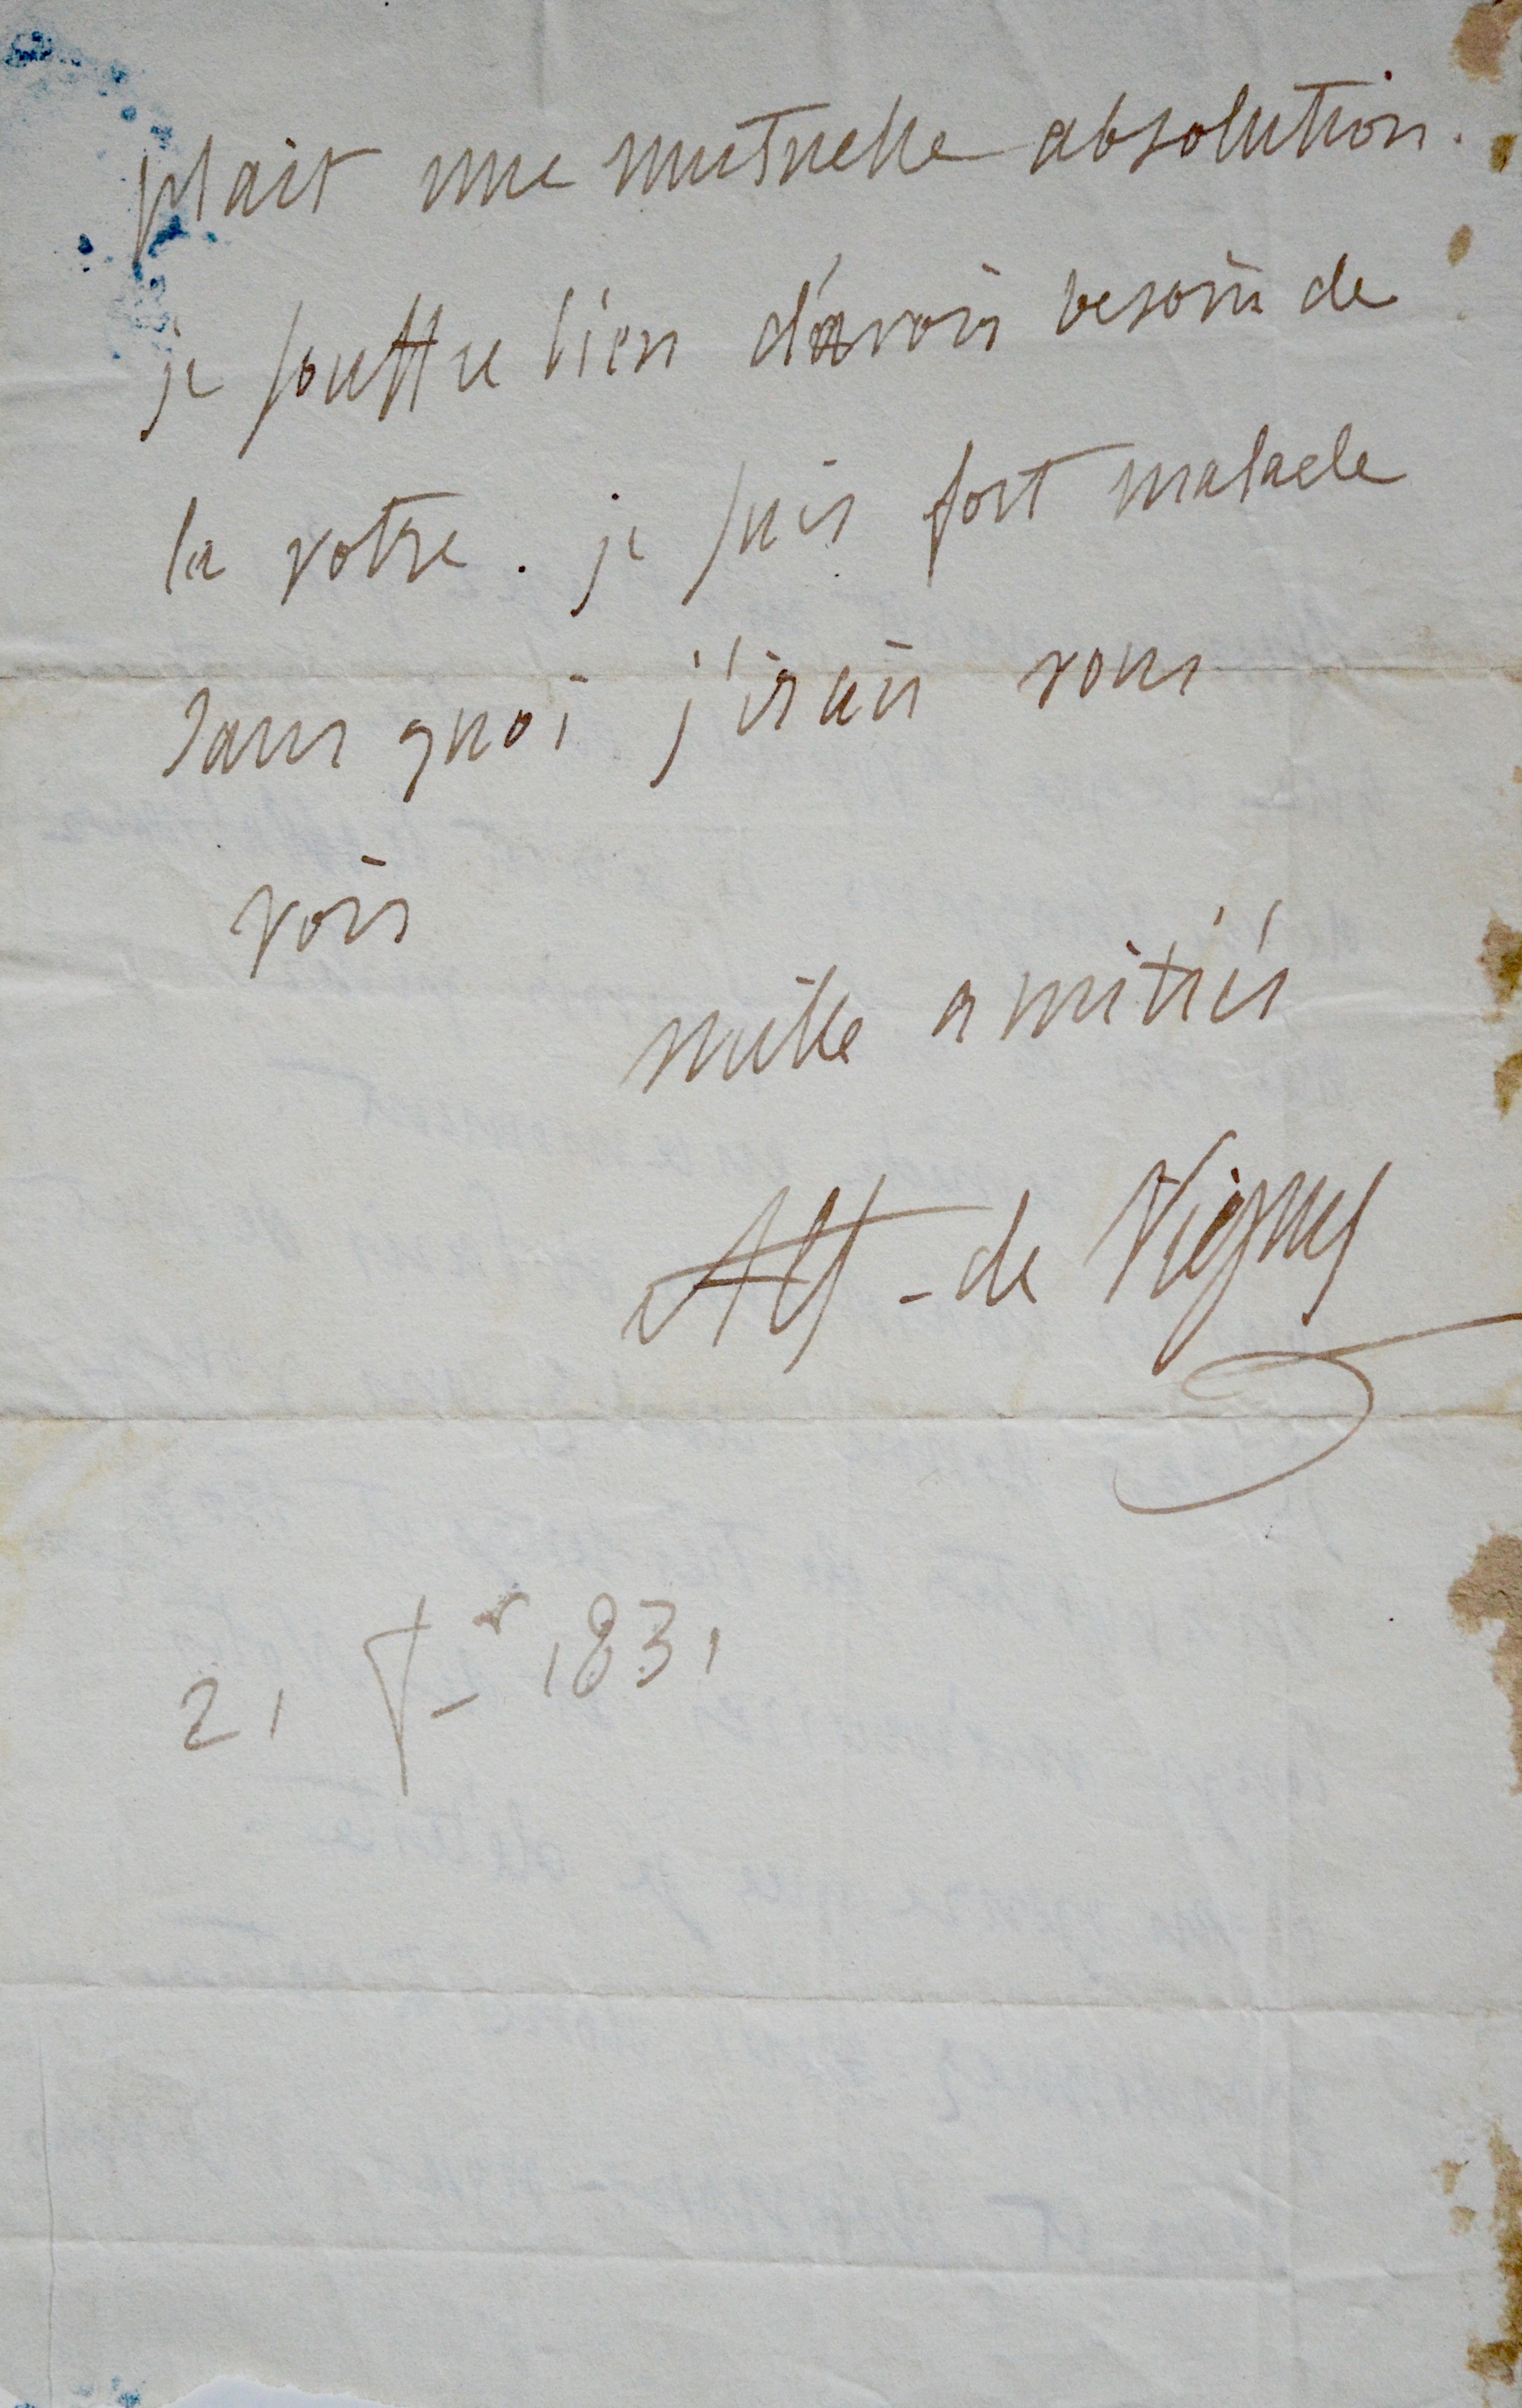 plait une mutuelle absolution.
je souffre bien d'avoir besoin de
la votre. je suis fort malade
sans quoi j'irais vous
voir
mille amitiés
Alf-de Vigny
21 1831